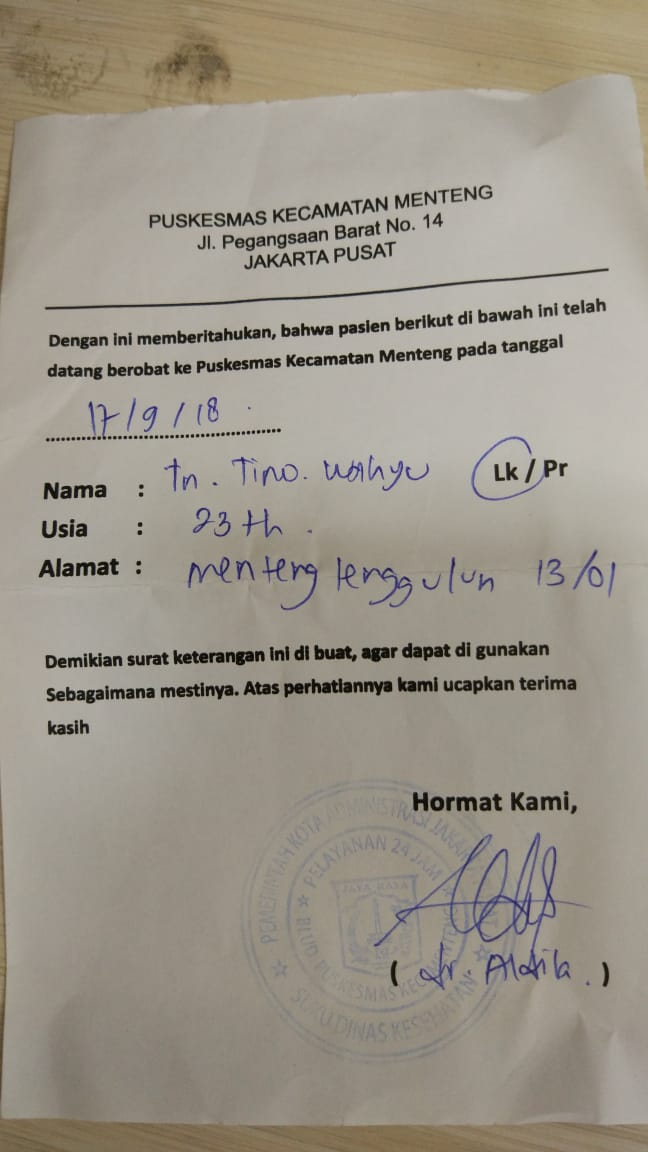 PUSKESMAS KECAMATAN MENTENG
Jl. Pegangsaan Barat No. 14
JAKARTA PUSAT
Dengan ini memberitahukan, bahwa pasien berikut di bawah ini telah
datang berobat ke Puskesmas Kecamatan Menteng pada tanggal
17/9/18
Nama : Tn. Tino. Wahyu Lk / Pr
Usia : 23 th.
Alamat : Menteng tenggulun 13/01
Demikian surat keterangan ini di buat, agar dapat di gunakan
Sebagaimana mestinya. Atas perhatiannya kami ucapkan terima
kasih
Hormat Kami,
( dr. Aldila. )
PEMERINTAH KOTA ADMINISTRASI JAKARTA
PELAYANAN 24 JAM
JAYA RAYA
PUSKESMAS KECAMATAN MENTENG
SUKU DINAS KESEHATAN